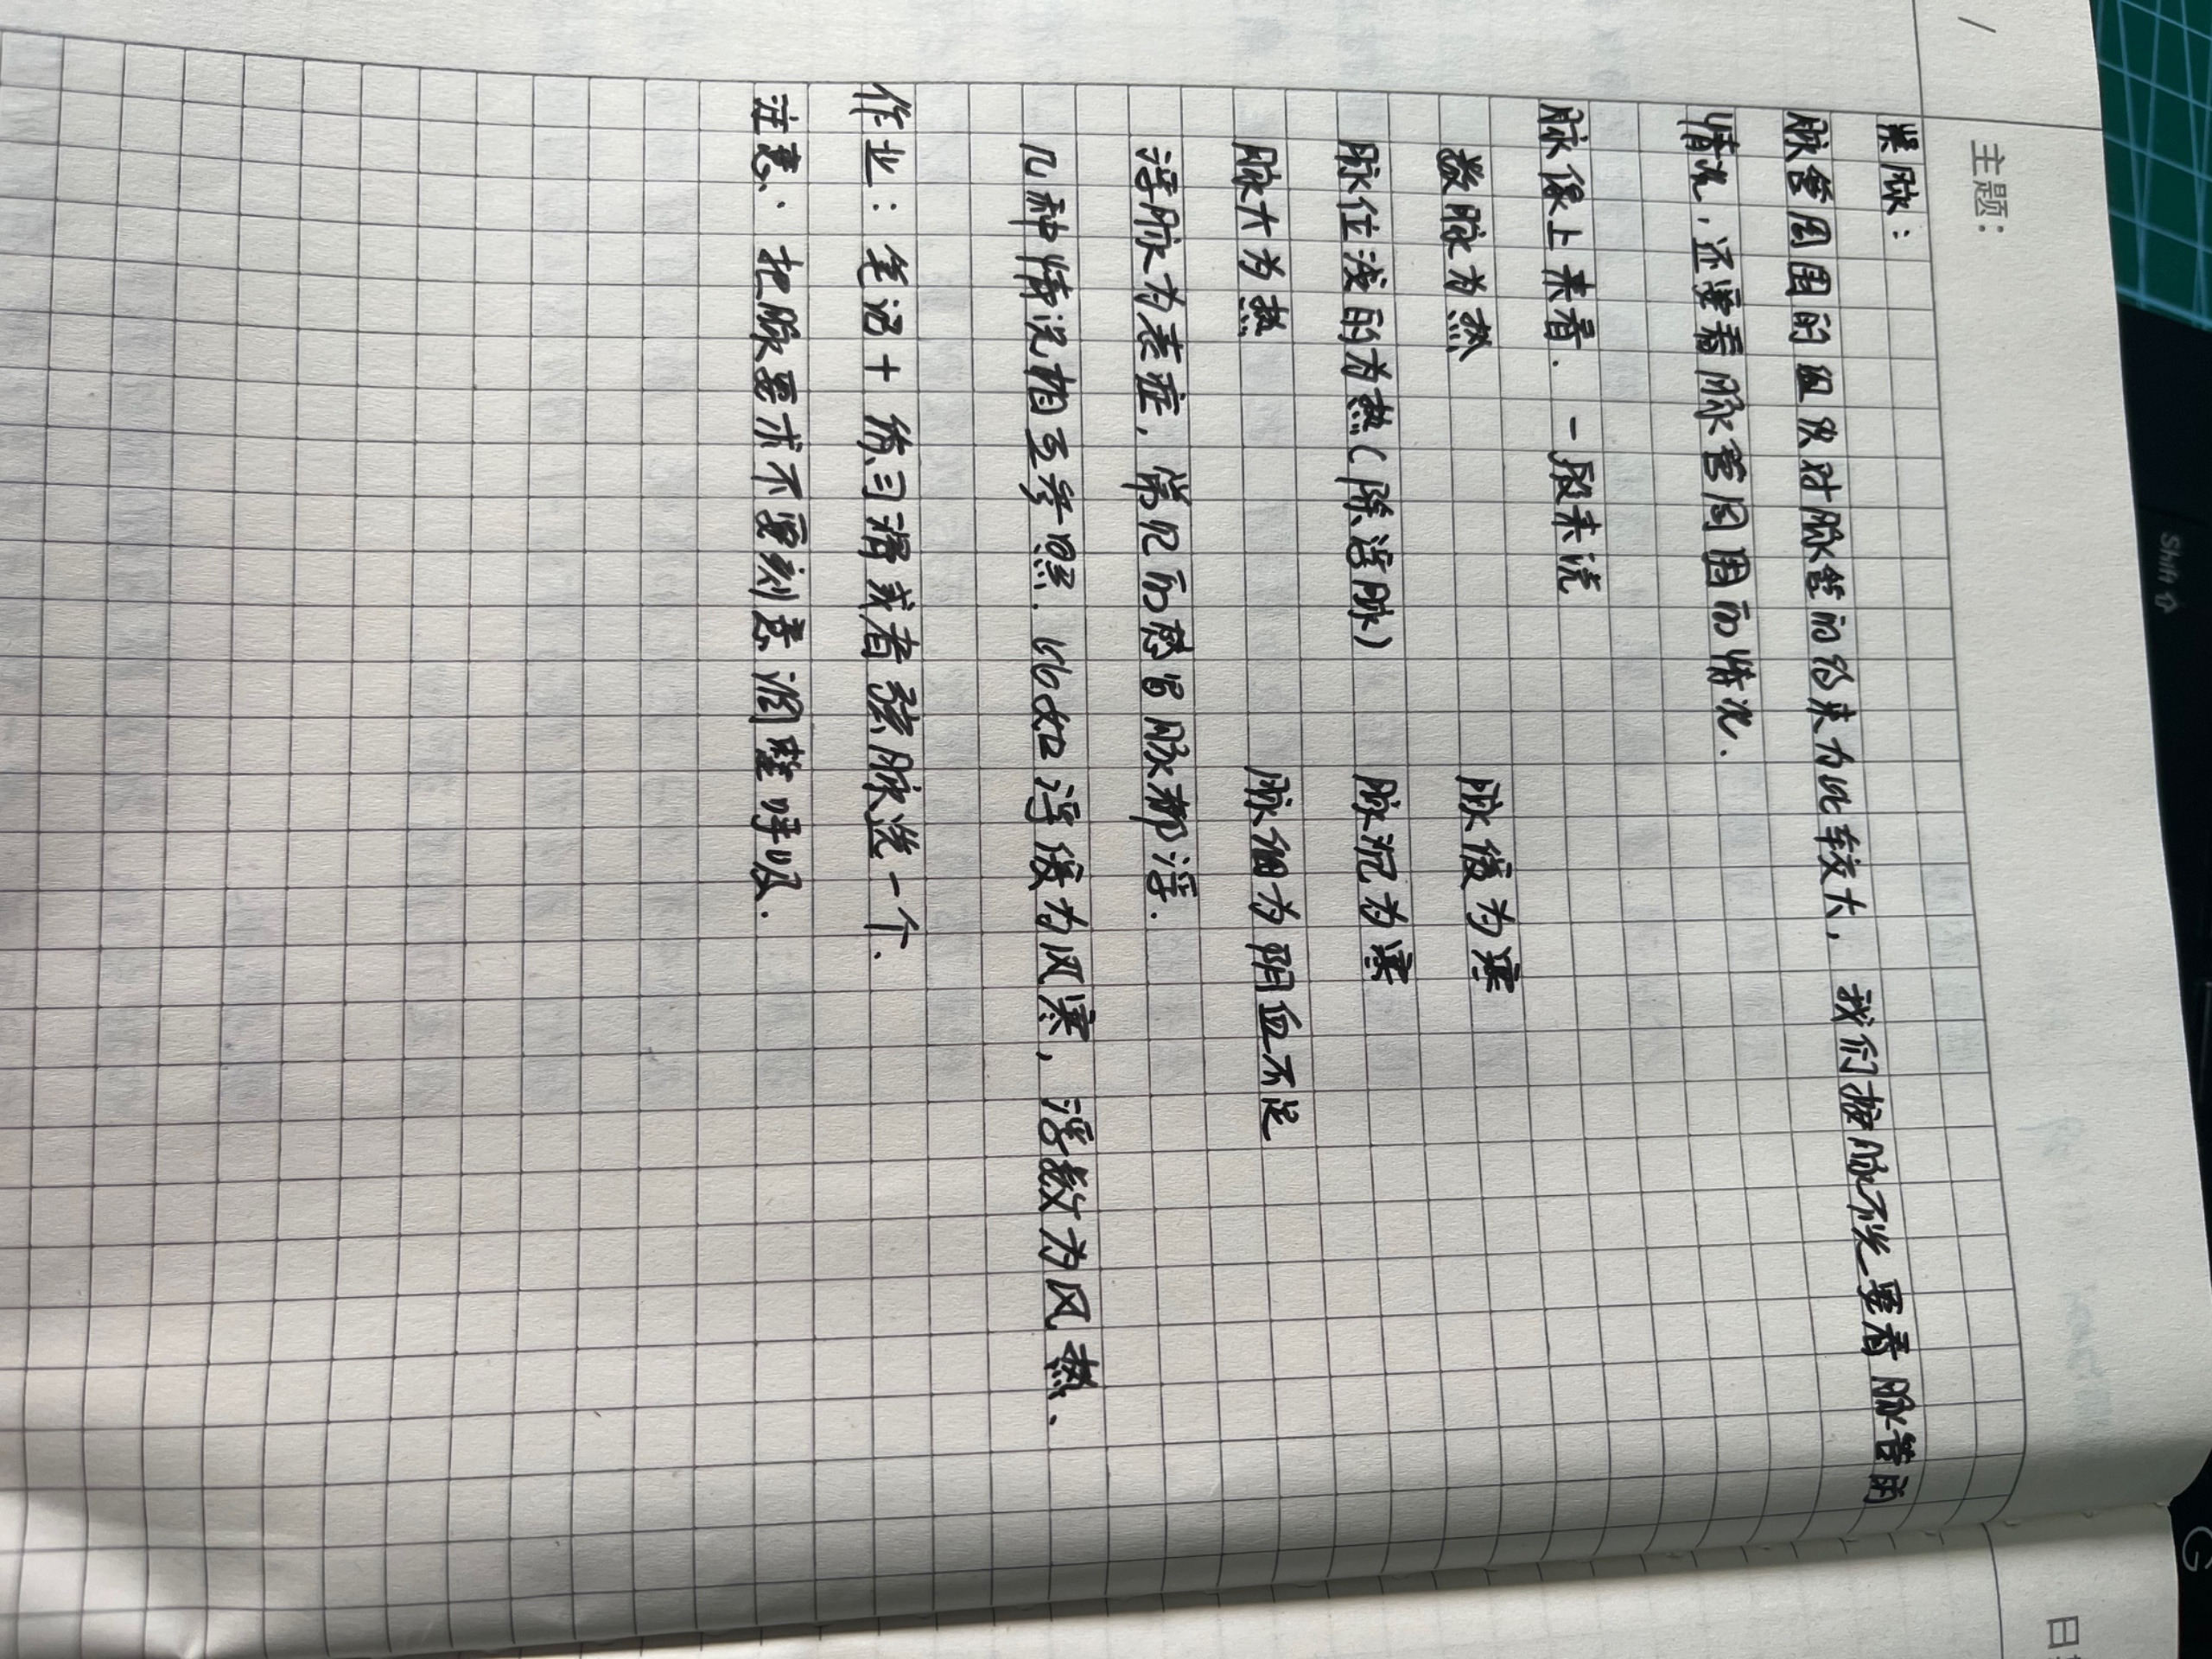 主题：
紧脉：
脉管周围的组织对脉管的约束力比较大，我们按脉不光要看脉管的
情况，还要看脉管周围的情况．
脉像上来看．一般来说
数脉为热 脉缓为寒
脉位浅的为热（除浮脉） 脉沉为寒
脉大为热 脉细为阴血不足
浮脉为表症，常见的感冒脉都浮．
几种情况相互参照．比如浮缓为风寒，浮数为风热、
作业：笔记＋练习滑或者弦脉选一个．
注意．把脉要求不要刻意调整呼吸．
Shift ⇧
G
日